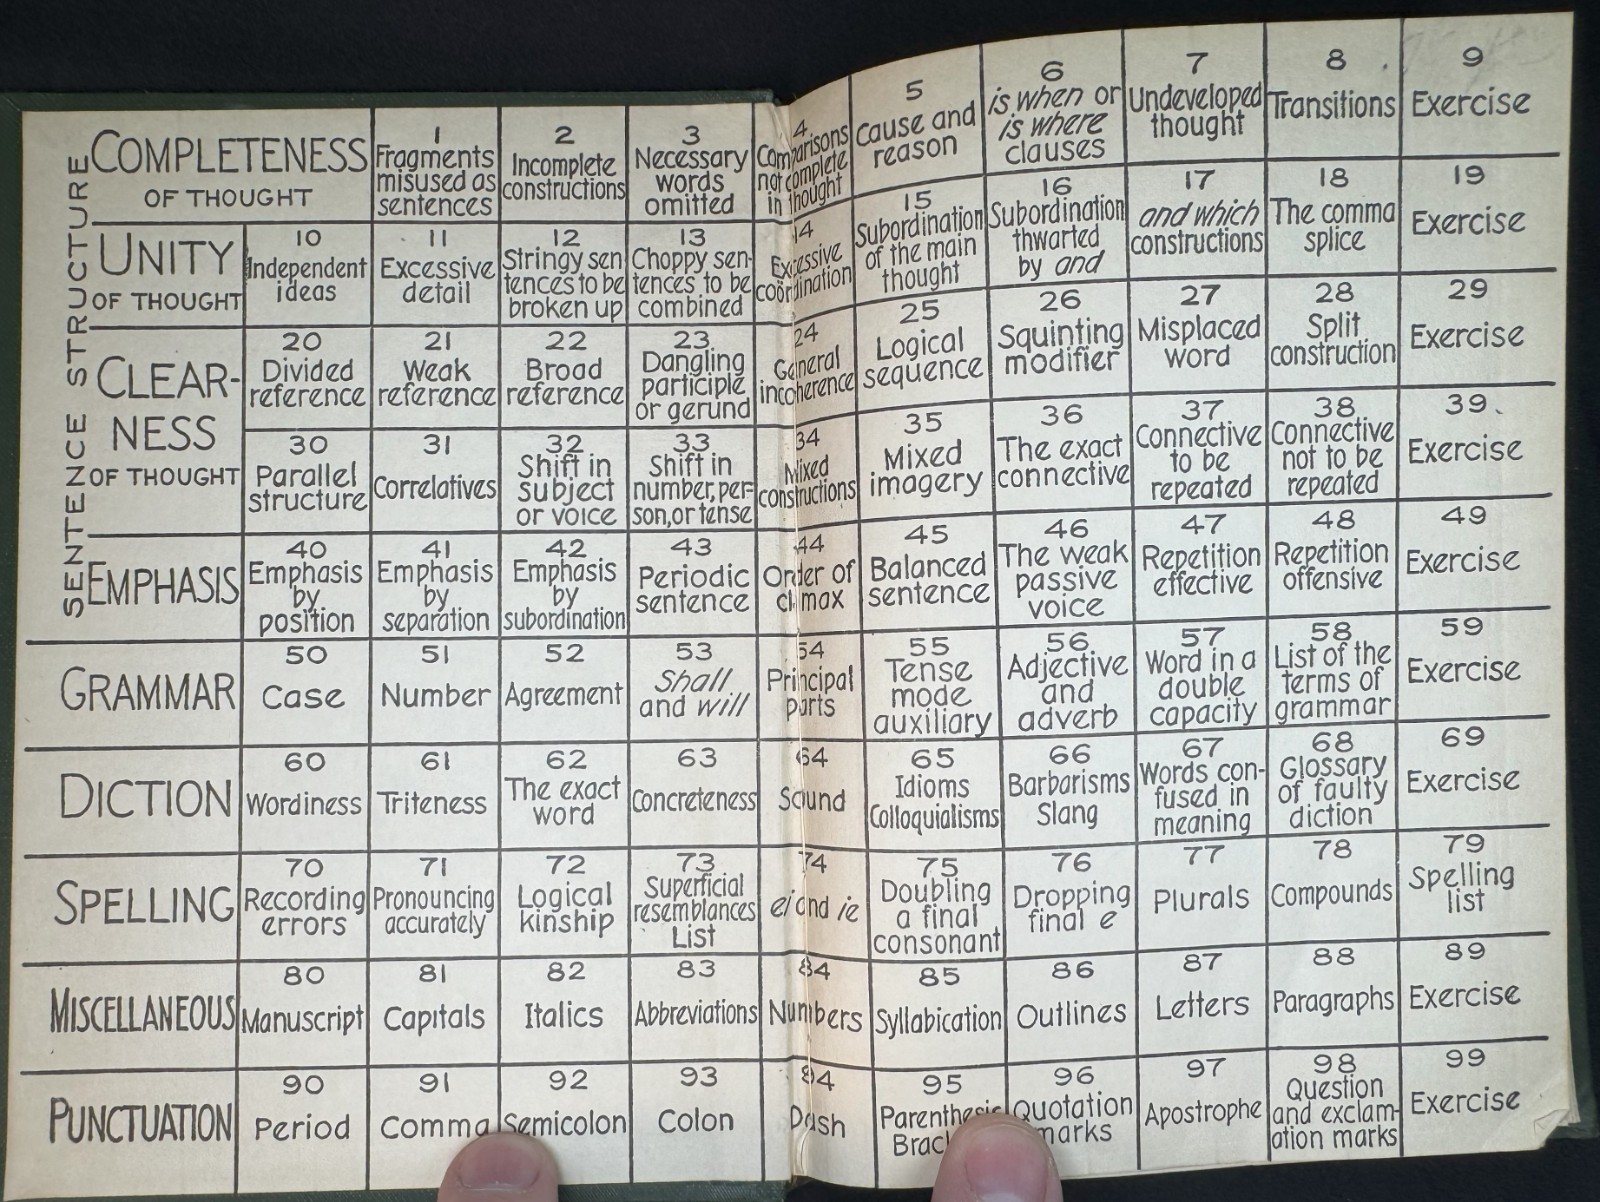 SENTENCE STRUCTURE
COMPLETENESS
OF THOUGHT
1
Fragments
misused as
sentences
2
Incomplete
constructions
3
Necessary
words
omitted
4
Comparisons
not complete
in thought
5
Cause and
reason
6
is when or
is where
clauses
7
Undeveloped
thought
8
Transitions
9
Exercise
UNITY
OF THOUGHT
10
Independent
ideas
11
Excessive
detail
12
Stringy sen
tences to be
broken up
13
Choppy sen-
tences to be
combined
14
Excessive
coördination
15
Subordination
of the main
thought
16
Subordination
thwarted
by and
17
and which
constructions
18
The comma
splice
19
Exercise
CLEAR-
NESS
OF THOUGHT
20
Divided
reference
21
Weak
reference
22
Broad
reference
23
Dangling
participle
or gerund
24
General
incoherence
25
Logical
sequence
26
Squinting
modifier
27
Misplaced
word
28
Split
construction
29
Exercise
30
Parallel
structure
31
Correlatives
32
Shift in
subject
or voice
33
Shift in
number, per-
son, or tense
34
Mixed
constructions
35
Mixed
imagery
36
The exact
connective
37
Connective
to be
repeated
38
Connective
not to be
repeated
39
Exercise
EMPHASIS
40
Emphasis
by
position
41
Emphasis
by
separation
42
Emphasis
by
subordination
43
Periodic
sentence
44
Order of
climax
45
Balanced
sentence
46
The weak
passive
voice
47
Repetition
effective
48
Repetition
offensive
49
Exercise
GRAMMAR
50
Case
51
Number
52
Agreement
53
Shall
and will
54
Principal
parts
55
Tense
mode
auxiliary
56
Adjective
and
adverb
57
Word in a
double
capacity
58
List of the
terms of
grammar
59
Exercise
DICTION
60
Wordiness
61
Triteness
62
The exact
word
63
Concreteness
64
Sound
65
Idioms
Colloquialisms
66
Barbarisms
Slang
67
Words con-
fused in
meaning
68
Glossary
of faulty
diction
69
Exercise
SPELLING
70
Recording
errors
71
Pronouncing
accurately
72
Logical
kinship
73
Superficial
resemblances
List
74
ei and ie
75
Doubling
a final
consonant
76
Dropping
final e
77
Plurals
78
Compounds
79
Spelling
list
MISCELLANEOUS
80
Manuscript
81
Capitals
82
Italics
83
Abbreviations
84
Numbers
85
Syllabication
86
Outlines
87
Letters
88
Paragraphs
89
Exercise
PUNCTUATION
90
Period
91
Comma
92
Semicolon
93
Colon
94
Dash
95
Parenthesis
Brac
96
Quotation
marks
97
Apostrophe
98
Question
and exclam-
ation marks
99
Exercise